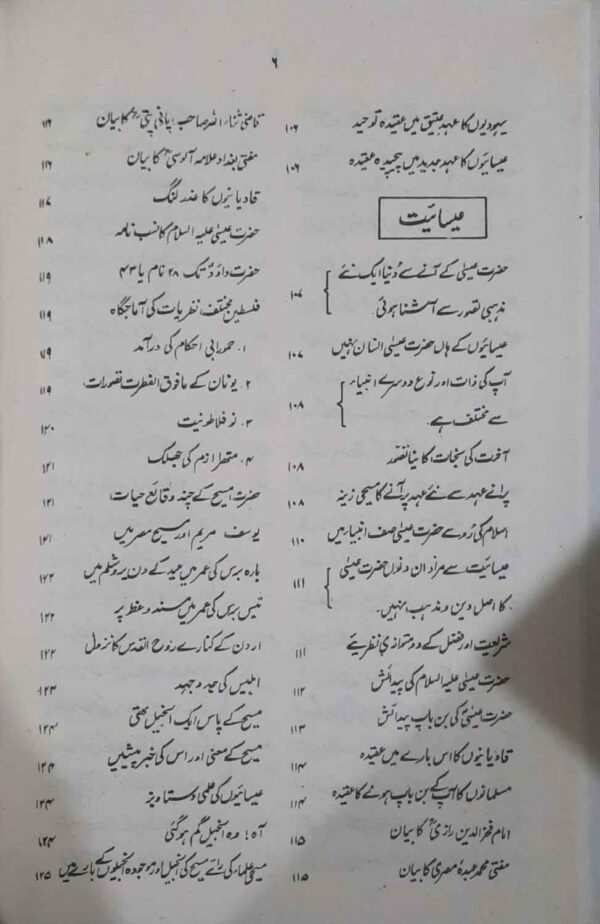 ۶
یہودیوں کا عہد عتیق میں عقیدہ توحید ۱۰۶
عیسائیوں کا عہد جدید میں پیچیدہ عقیدہ ۱۰۶
عیسائیت
حضرت عیسیٰ کے آنے سے دنیا ایک نئے
مذہبی تصور سے آشنا ہوئی ۱۰۷
عیسائیوں کے ہاں حضرت عیسیٰ انسان نہیں ۱۰۷
آپ کی ذات اور نوع دوسرے انبیاء
سے مختلف ہے۔ ۱۰۸
آخرت کی نجات کا نیا تصور ۱۰۸
پرانے عہد سے نئے عہد پر آنے کا مسیحی زینہ ۱۰۸
اسلام کی رُو سے حضرت عیسیٰ صف انبیاء میں ۱۱۰
عیسائیت سے مراد ان دنوں حضرت عیسیٰ
کا اصل دین و مذہب نہیں۔ ۱۱۱
شریعت اور فضل کے دو متوازی نظریئے ۱۱۱
حضرت عیسیٰ علیہ السلام کی پیدائش ۱۱۲
حضرت عیسیٰؑ کی بن باپ پیدائش ۱۱۳
قادیانیوں کا اس بارے میں عقیدہ ۱۱۴
مسلمانوں کا آپ کے بن باپ ہونے کا عقیدہ ۱۱۴
امام فخر الدین رازیؒ کا بیان ۱۱۵
مفتی محمد عبدہٗ مصری کا بیان ۱۱۵
قاضی ثناء اللہ صاحب پانی پتیؒ کا بیان ۱۱۶
مفتی بغداد علامہ آلوسیؒ کا بیان ۱۱۶
قادیانیوں کا عذر لنگ ۱۱۷
حضرت عیسیٰ علیہ السلام کا نسب نامہ ۱۱۸
حضرت داؤدؑ تک ۲۸ نام یا ۴۳ ۱۱۹
فلسطین مختلف نظریات کی آماجگاہ ۱۱۹
۱۔ حمورابی احکام کی درآمد ۱۱۹
۲۔ یونان کے مافوق الفطرت تصورات ۱۱۹
۳۔ نو فلاطونیت ۱۲۰
۴۔ متھرا ازم کی جھلک ۱۲۱
حضرت المسیح کے چند وقائع حیات ۱۲۱
یوسف مریم اور مسیح مصر میں ۱۲۱
بارہ برس کی عمر میں عید کے دن یروشلم میں ۱۲۲
تیس برس کی عمر میں مسند وعظ پر ۱۲۲
اردن کے کنارے روح القدس کا نزول ۱۲۲
ابلیس کی جدوجہد ۱۲۳
مسیح کے پاس ایک انجیل تھی ۱۲۴
مسیح کے معنی اور اس کی خبر پیشیں ۱۲۴
عیسائیوں کی علمی دستاویز ۱۲۴
آہ! وہ انجیل گم ہو گئی ۱۲۴
مسیحی علماء کی رائے مسیح کی انجیل اور موجودہ انجیلوں کے بارے میں ۱۲۵